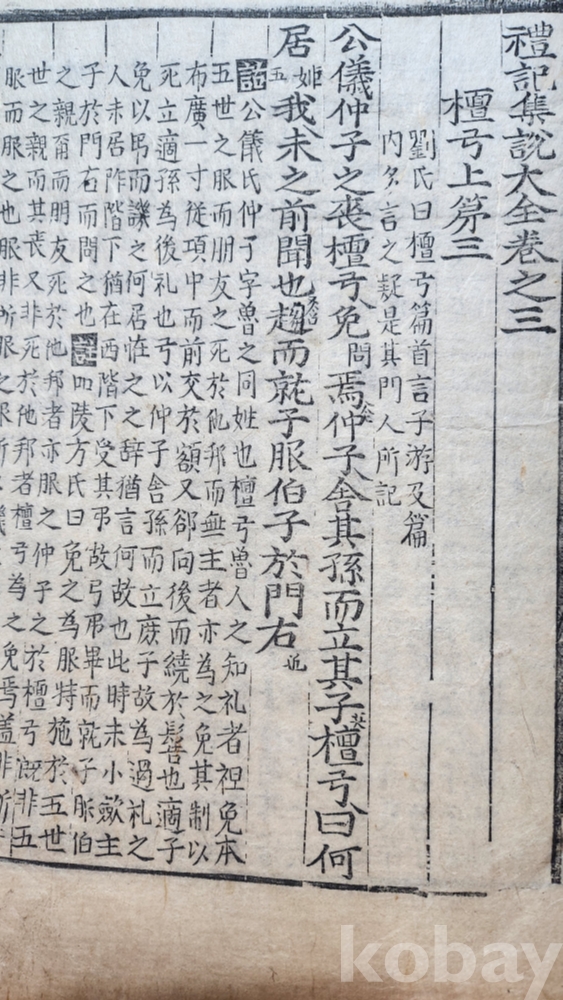 禮記集說大全卷之三
檀弓上第三
劉氏曰檀弓篇首言子游及篇
内多言之疑是其門人所記
公儀仲子之喪檀弓免問焉仲子舍其孫而立其子檀弓曰何
居姬我未之前聞也趨而就子服伯子於門右
註公儀氏仲子字魯之同姓也檀弓魯人之知礼者袒免本
五世之服而朋友之死於他邦而無主者亦為之免其制以
布廣一寸從項中而前交於額又卻向後而繞於髻也適子
死立適孫為後礼也弓以仲子舍孫而立庶子故為過礼之
免以弔而譏之何居恠之之辞猶言何故也此時未小斂主
人未居阼階下猶在西階下受其弔故弓弔畢而就子服伯
子於門右而問之也註四陵方氏曰免之為服特施於五世
之親爾而朋友死於他邦者亦服之仲子之於檀弓既非五
世之親而其喪又非死於他邦者檀弓為之免焉盖非所
服而服之也服非所服之服所
kobay